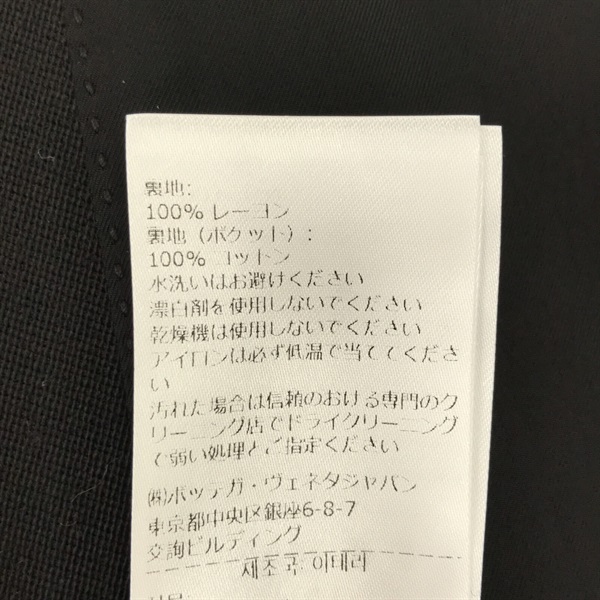 裏地:
100% レーヨン
裏地（ポケット）:
100% コットン
水洗いはお避けください
漂白剤を使用しないでください
乾燥機は使用しないでください
アイロンは必ず低温で当ててくださ
い
汚れた場合は信頼のおける専門のク
リーニング店でドライクリーニング
で弱い処理とご指定ください
㈱ボッテガ・ヴェネタジャパン
東京都中央区銀座6-8-7
交詢ビルディング
제조국: 이태리